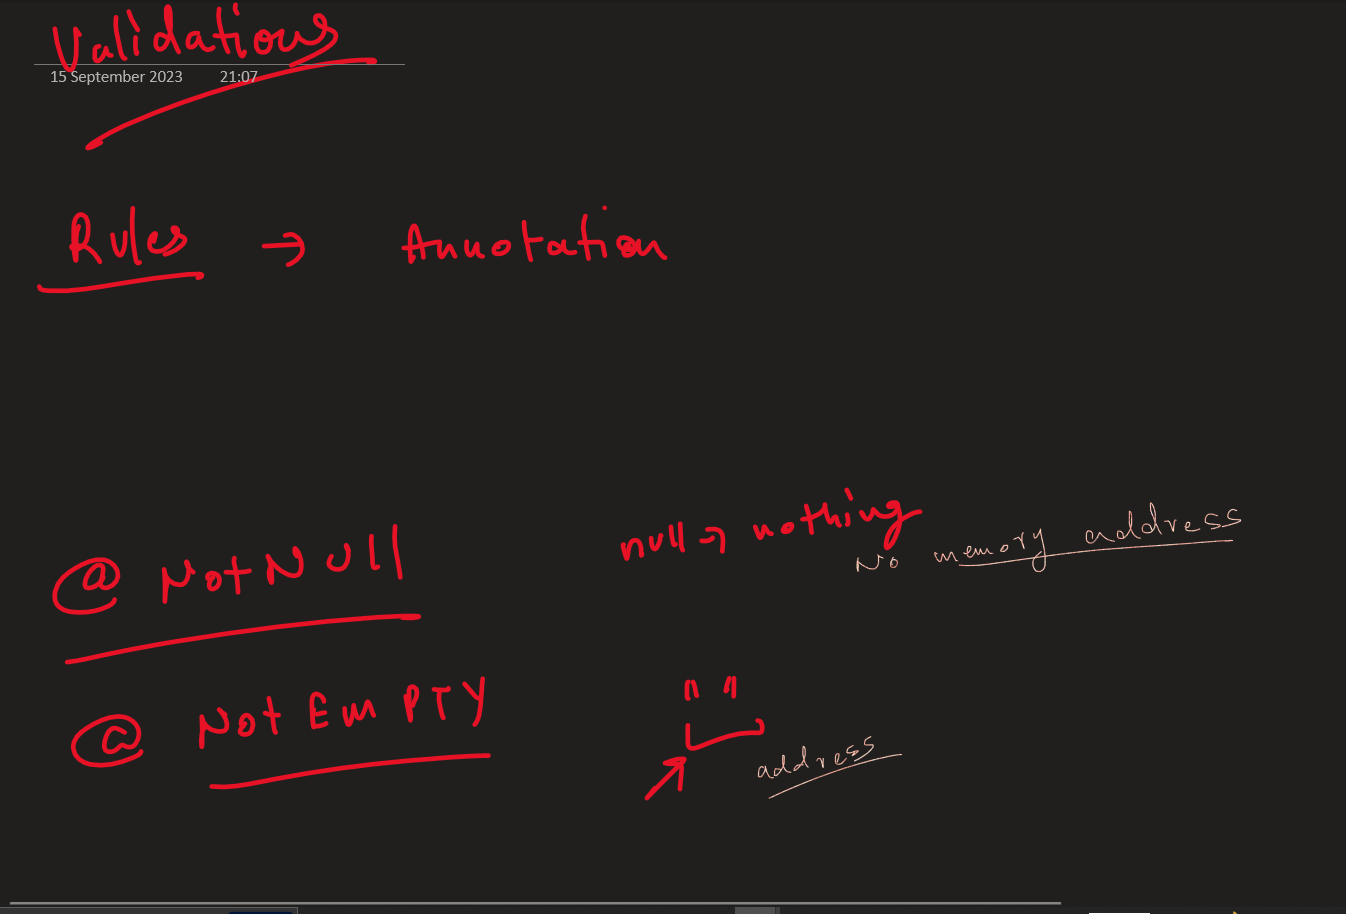 Validations
15 September 2023 21:07
Rules → Annotation
@ NotNull null → nothing
No memory address
@ NotEmPTY " "
address